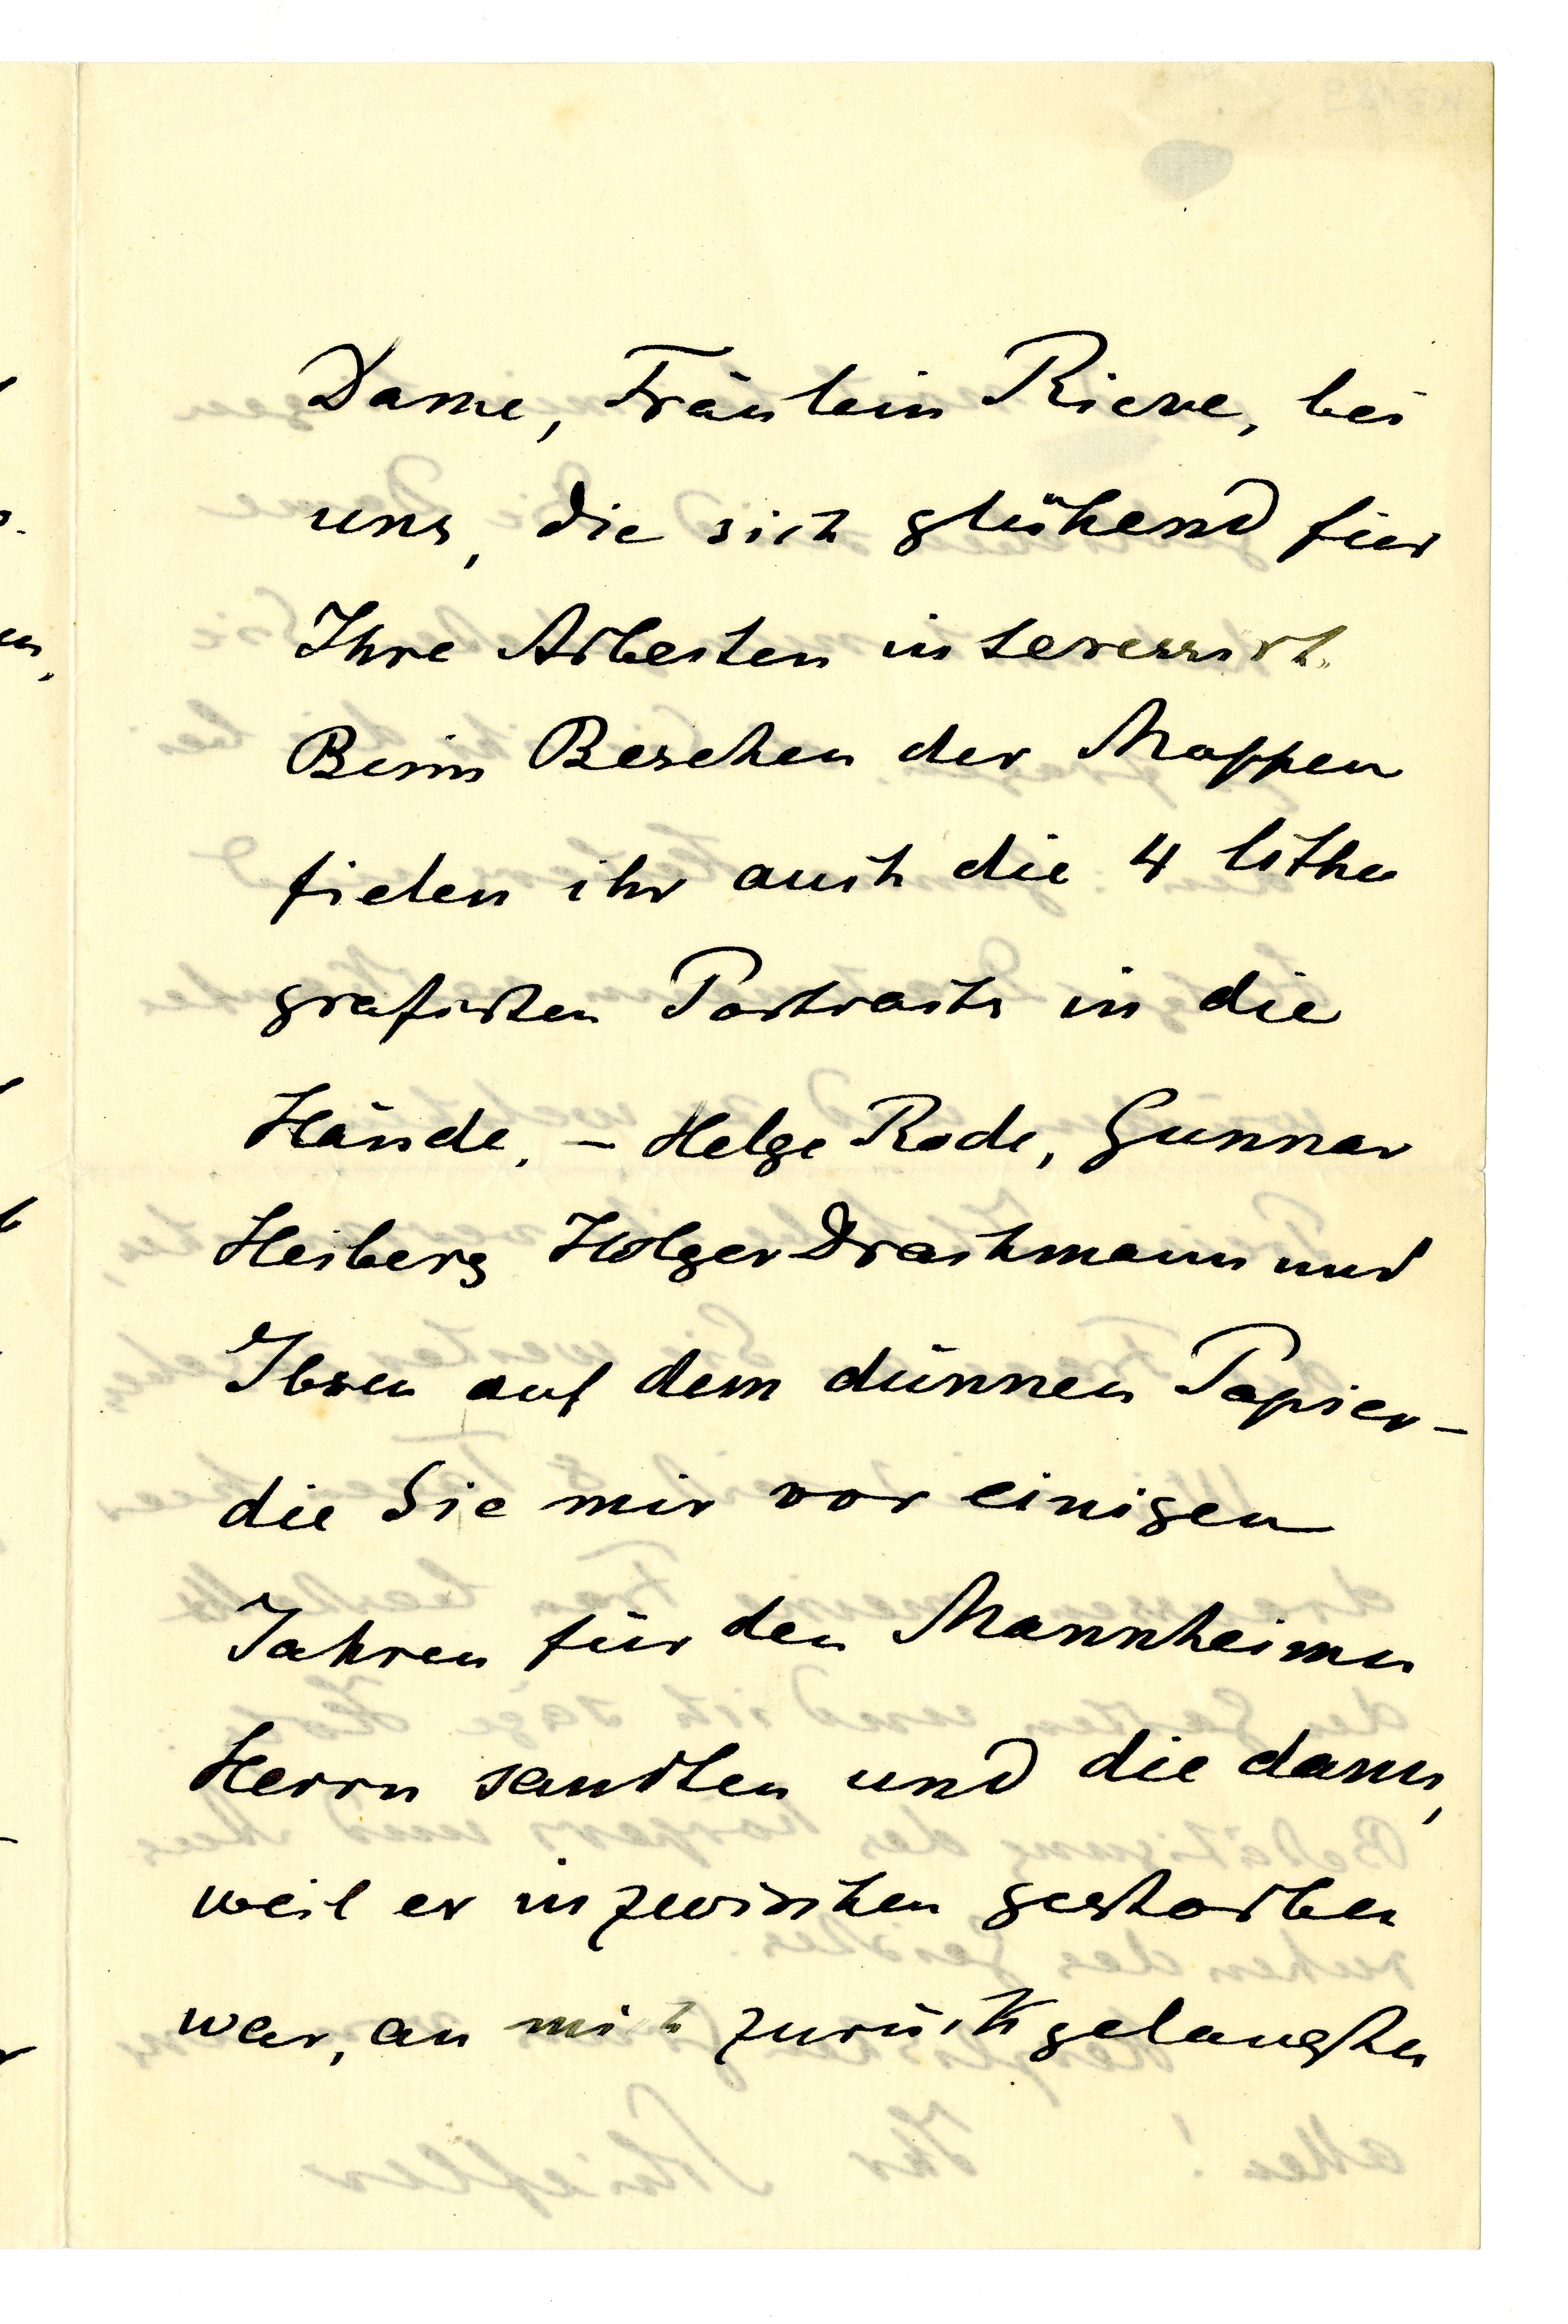 Dame, Fräulein Rieve, bei
uns, die sich glühend für
Ihre Arbeiten interessirt.
Beim Besehen der Mappen
fielen ihr auch die 4 litho
grafirten Portraits in die
Hände, – Helge Rode, Gunnar
Heiberg Holger Drachmann und
Ibsen auf dem dünnen Papier –
die Sie mir vor einigen
Jahren für den Mannheimer
Herrn sandten und die dann,
weil er inzwischen gestorben
war, an mich zurückgelangten